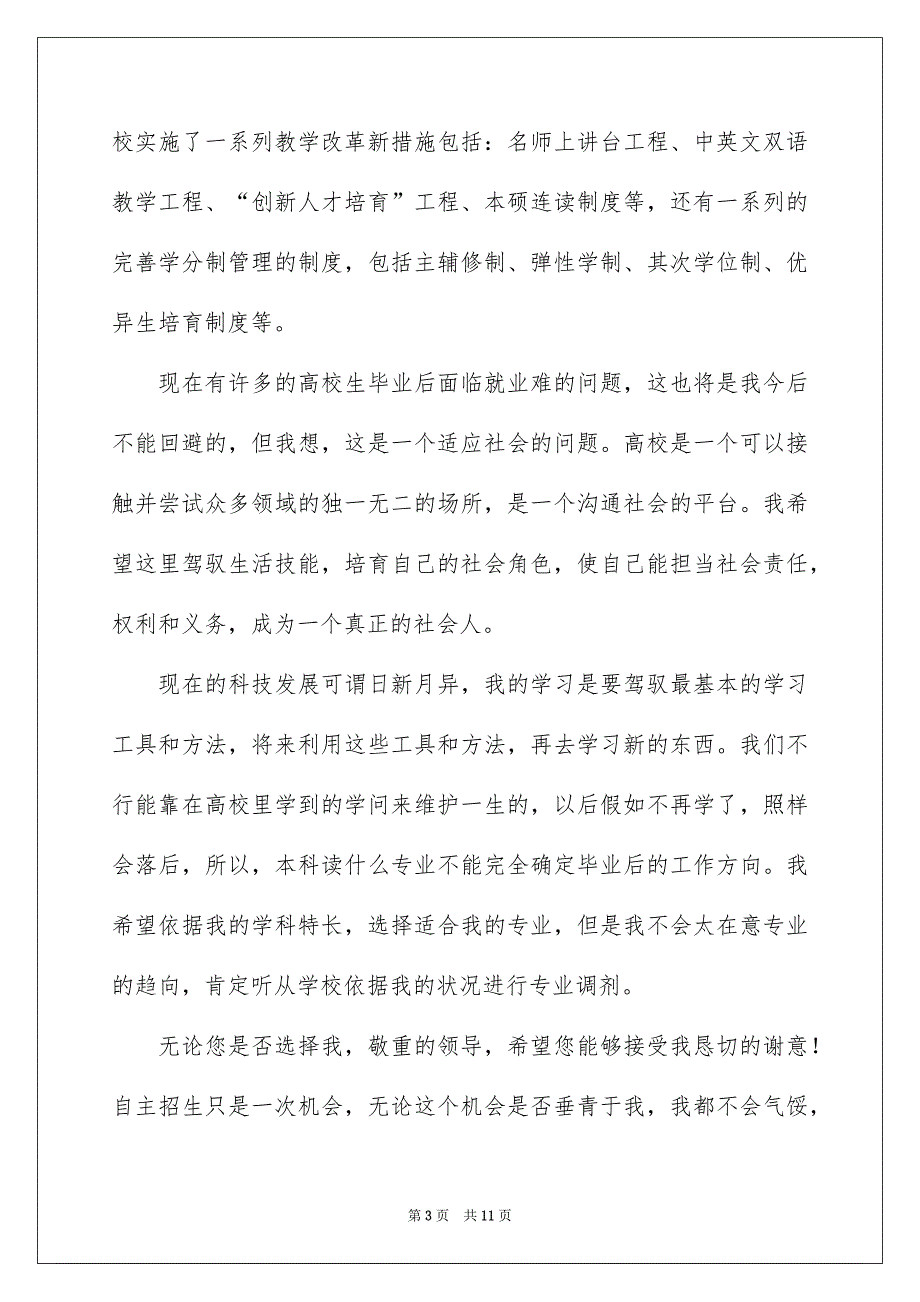 校实施了一系列教学改革新措施包括：名师上讲台工程、中英文双语
教学工程、“创新人才培育”工程、本硕连读制度等，还有一系列的
完善学分制管理的制度，包括主辅修制、弹性学制、其次学位制、优
异生培育制度等。
现在有许多的高校生毕业后面临就业难的问题，这也将是我今后
不能回避的，但我想，这是一个适应社会的问题。高校是一个可以接
触并尝试众多领域的独一无二的场所，是一个沟通社会的平台。我希
望这里驾驭生活技能，培育自己的社会角色，使自己能担当社会责任，
权利和义务，成为一个真正的社会人。
现在的科技发展可谓日新月异，我的学习是要驾驭最基本的学习
工具和方法，将来利用这些工具和方法，再去学习新的东西。我们不
行能靠在高校里学到的学问来维护一生的，以后假如不再学了，照样
会落后，所以，本科读什么专业不能完全确定毕业后的工作方向。我
希望依据我的学科特长，选择适合我的专业，但是我不会太在意专业
的趋向，肯定听从学校依据我的状况进行专业调剂。
无论您是否选择我，敬重的领导，希望您能够接受我恳切的谢意！
自主招生只是一次机会，无论这个机会是否垂青于我，我都不会气馁，
第 3 页 共 11 页